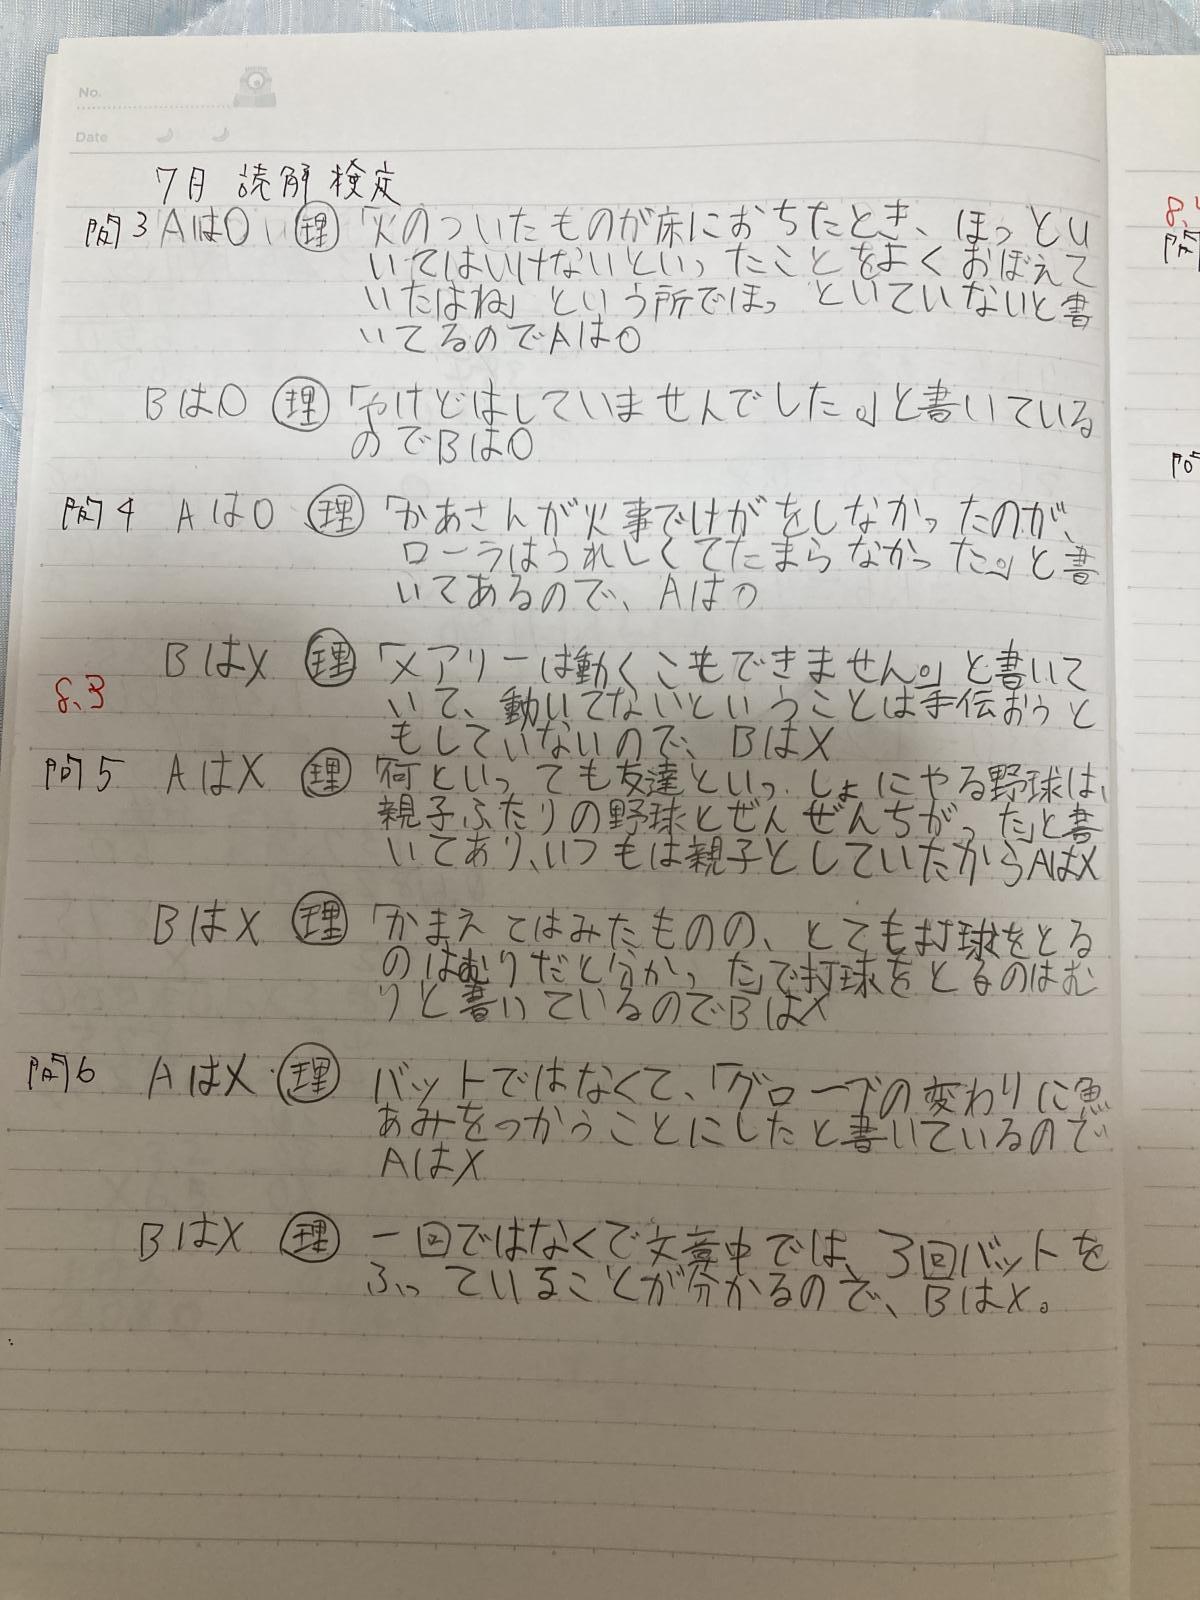 No.
Date
7月 読解検定
問3 Aは○ 理 「火のついたものが床におちたとき、ほっとい
いてはいけないといったことをよくおぼえて
いたはね」という所でほっといていないと書
いてるのでAは○
Bは○ 理 「やけどはしていませんでした。」と書いている
のでBは○
問4 Aは○ 理 「かあさんが火事でけがをしなかったのが、
ローラはうれしくてたまらなかった。」と書
いてあるので、Aは○
Bは× 理 「メアリーは動くこもできません。」と書いて
いて、動いてないということは手伝おうと
8.3
もしていないので、Bは×
問5 Aは× 理 「何といっても友達といっしょにやる野球は、
親子ふたりの野球とぜんぜんちがった」と書
いてあり、いつもは親子としていたからAは×
Bは× 理 「かまえてはみたものの、とても打球をとる
のはむりだと分かった」で打球をとるのはむ
りと書いているのでBは×
問6 Aは× 理 バットではなくて、「グローブの変わりに魚
あみをつかうことにしたと書いているので
Aは×
Bは× 理 一回ではなくで文章中では、3回バットを
ふっていることが分かるので、Bは×。
問